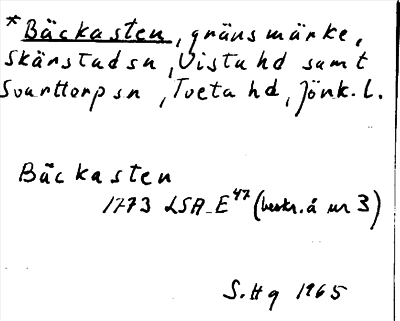 *Bäckasten, gränsmärke,
Skärstads sn, Vista hd samt
Svarttorps sn, Tveta hd, Jönk. l.
Bäckasten
1773 LSA E47 (beskr. å nr 3)
S. Hg 1965